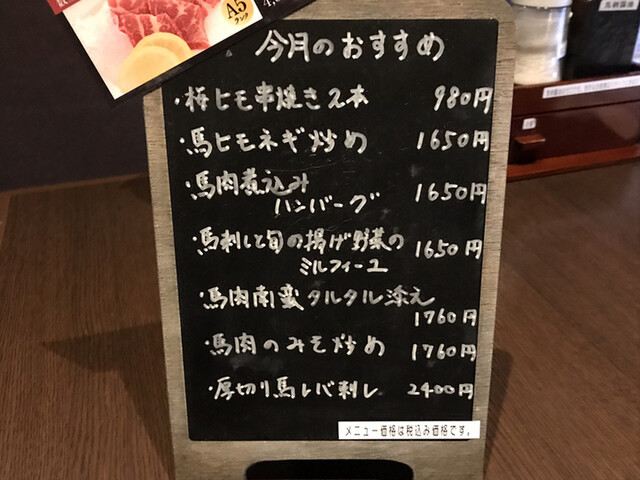 A5
ランク
今月のおすすめ
・桜ヒモ串焼き2本 980円
・馬ヒモネギ炒め 1650円
・馬肉煮込み
ハンバーグ 1650円
・馬刺しと旬の揚げ野菜の
ミルフィーユ 1650円
・馬肉南蛮タルタル添え
1760円
・馬肉のみそ炒め 1760円
・厚切り馬レバ刺し 2400円
メニュー価格は税込み価格です。